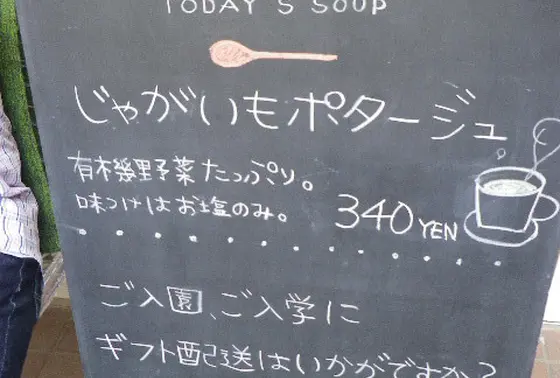 TODAY'S SOUP
じゃがいもポタージュ
有木幾里野菜たっぷり。
味つけはお塩のみ。
340YEN
ご入園、ご入学に
ギフト配送はいかがですか?